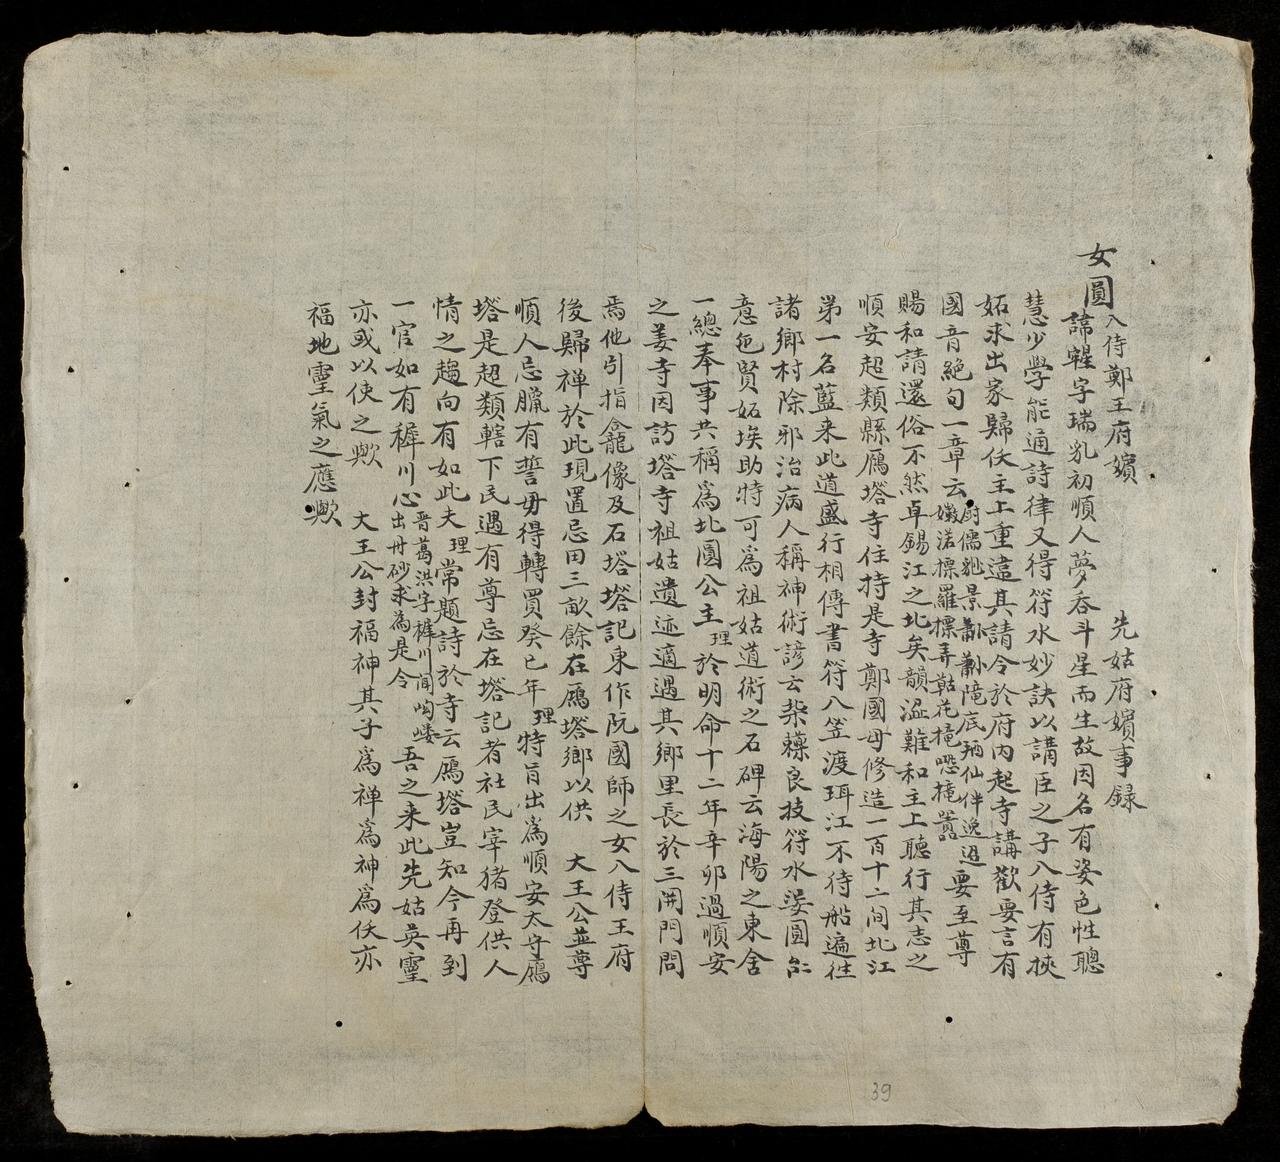 女圓入侍鄭王府嬪 先姑府嬪事録
諱 字瑞乳初順人夢吞斗星而生故因名有姿色性聰
慧少學能通詩律又得符水妙訣以講臣之子入侍有挾
妬求出家歸伏主上重違其請令於府内起寺講歡要言有
國音絶句一章云 要至尊
賜和請還俗不然卓錫江之北矣韻澁難和主上聽行其志之
順安超類縣鴈塔寺住持是寺鄭國母修造一百十二间北江
第一名藍来此道盛行相傳書符入笠渡珥江不待船遍往
諸鄉村除邪治病人稱神術諺云 良技符水 圓
意 賢妬埃助特可爲祖姑道術之石碑云海陽之東舍
一總奉事共稱爲北圓公主理於明命十二年辛卯過順安
之姜寺因訪塔寺祖姑遺迹適遇其鄉里長於三開門問
焉他引指龕像及石塔塔記東作阮國師之女入侍王府
後歸禅於此現置忌田三畝餘在鴈塔鄉以供 大王公並尊
順人忌臘有誓毋得轉買癸巳年理特旨出爲順安太守鴈
塔是超類轄下民遇有尊忌在塔記者社民宰猪登供人
情之趨向有如此夫理常題詩於寺云鴈塔豈知今再到
一官如有稺川心晋葛洪字稚川闻岣嶁出丹砂求為是令 吾之来此先姑英靈
亦或以使之歟 大王公封福神其子爲禅爲神爲伏亦
福地靈氣之應歟
39